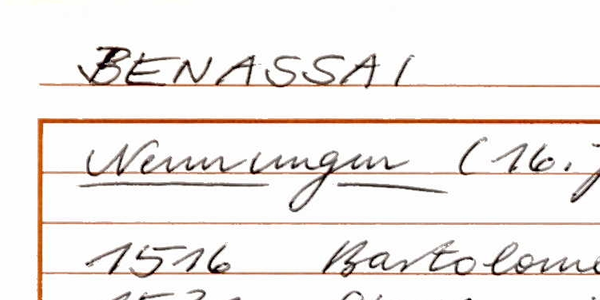 BENASSAI
Nennungen (16.
1516 Bartolome